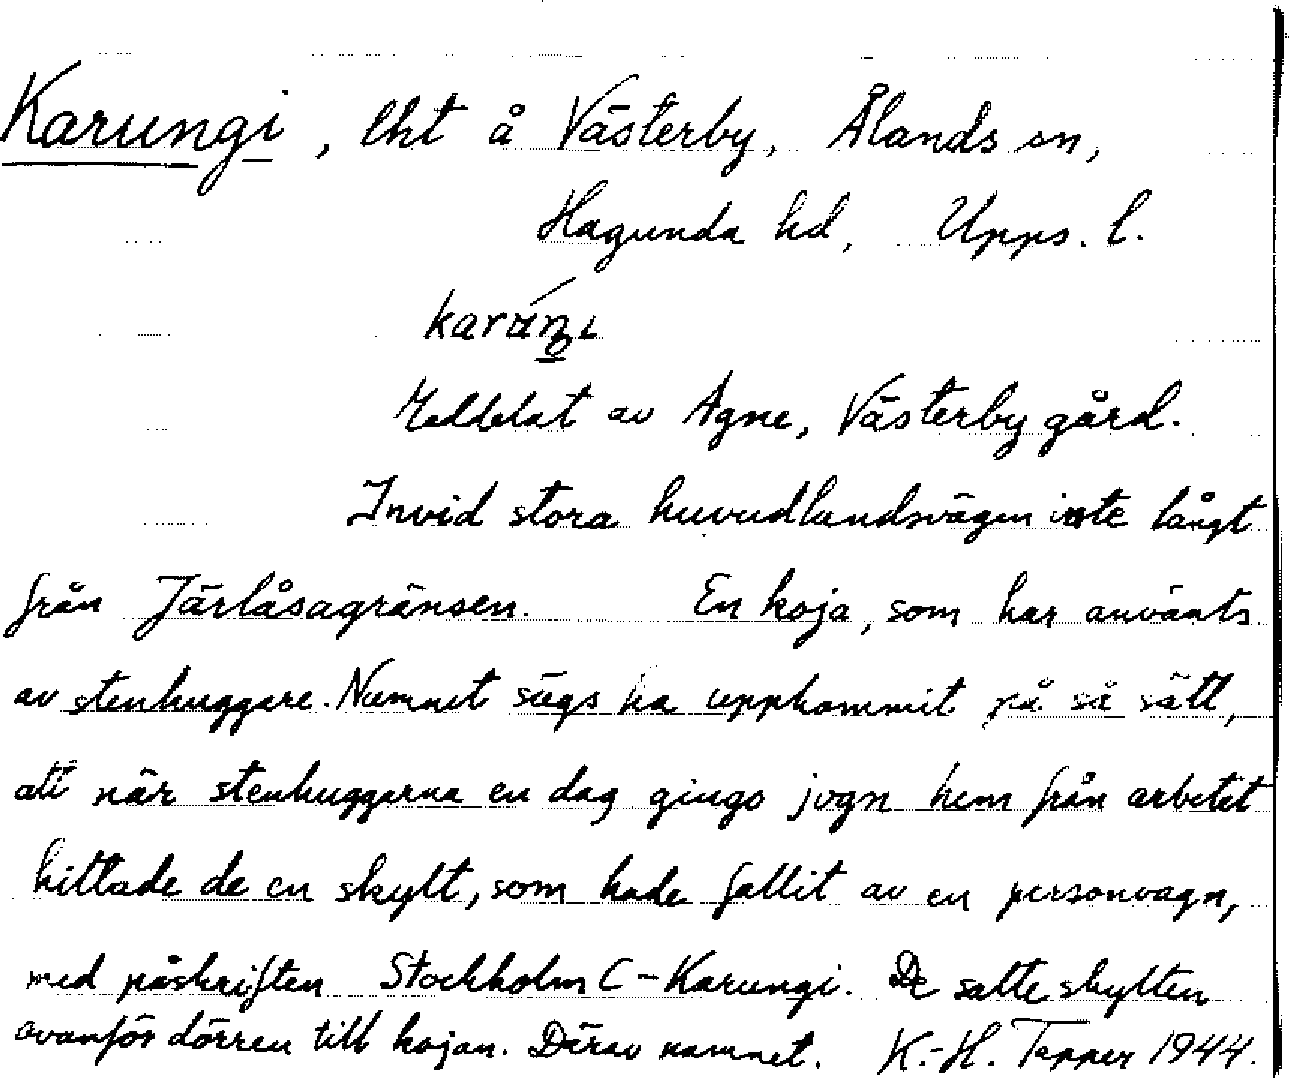 Karungi, lht å Västerby, Ålands sn,
Hagunda hd, Upps. l.
Meddelat av Agne, Västerby gård.
Invid stora huvudlandsvägen inte långt
från Järlåsagränsen. En koja, som har använts
av stenhuggare. Namnet sägs ha uppkommit på så sätt,
att när stenhuggarna en dag gingo hem från arbetet
hittade de en skylt, som hade fallit av en personvagn,
med påskriften Stockholm C - Karungi. De satte skylten
ovanför dörren till kojan. Därav namnet. K.-H. Tapper 1944.